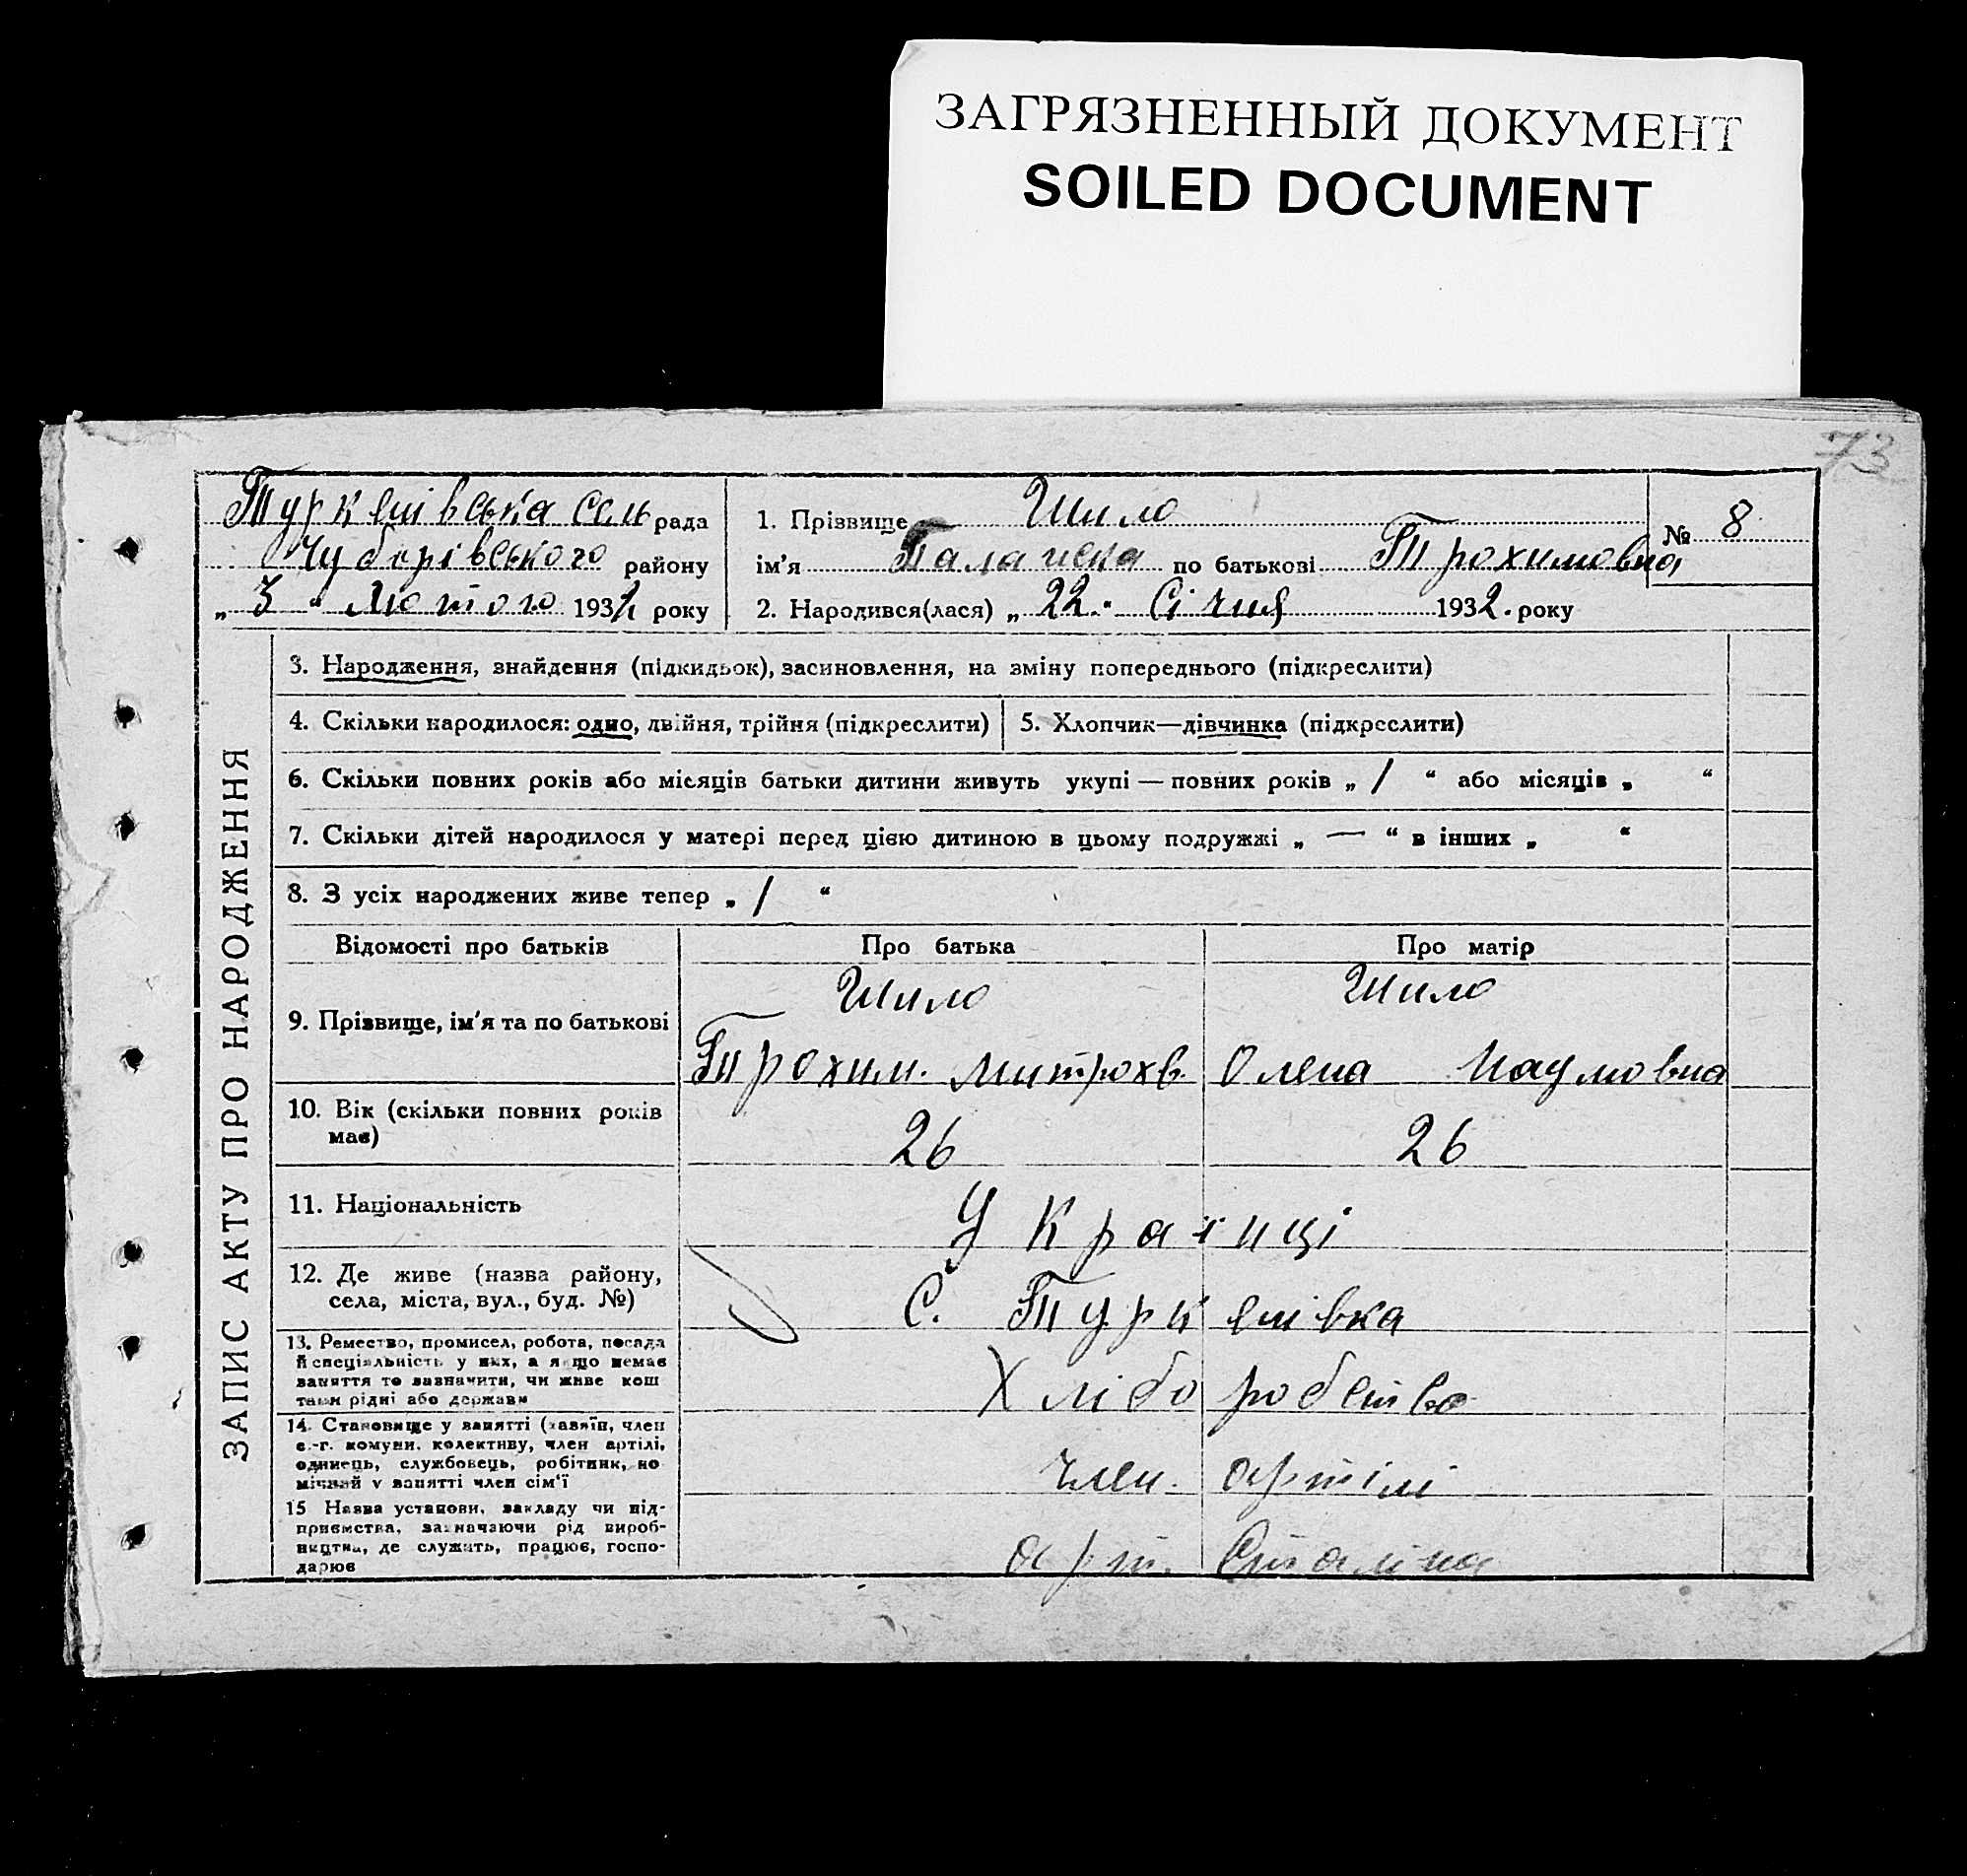 ЗАГРЯЗНЕННЫЙ ДОКУМЕНТ
SOILED DOCUMENT
73
Туркенівська Сель рада
Чубарівського району
„ 3 “ Лютого 1932 року
1. Прізвище Шило
№ 8
ім'я по батькові Трохимовна
2. Народився(лася) „ 22. “ Січня 1932. року
ЗАПИС АКТУ ПРО НАРОДЖЕННЯ
3. Народження, знайдення (підкидьок), засиновлення, на зміну попереднього (підкреслити)
4. Скільки народилося: одно, двійня, трійня (підкреслити)
5. Хлопчик—дівчинка (підкреслити)
6. Скільки повних років або місяців батьки дитини живуть укупі — повних років „ 1 “ або місяців „ “
7. Скільки дітей народилося у матері перед цією дитиною в цьому подружжі „ — “ в інших „ “
8. З усіх народжених живе тепер „ 1 “
Відомості про батьків
Про батька
Про матір
9. Прізвище, ім'я та по батькові
Шило
Трохим. Митрохв.
Шило
Олена Наумовна
10. Вік (скільки повних років
має)
26
26
11. Національність
Українці
12. Де живе (назва району,
села, міста, вул., буд. №)
С. Туркенівка
13. Ремество, промисел, робота, посада
й спеціяльність у них, а якщо немає
заняття то зазначити, чи живе кош
тами рідні або держави
Хліборобство
14. Становище у занятті (хазяїн, член
с.-г. комуни, колективу, член артілі,
одинець, службовець, робітник, по
мічний у занятті член сім'ї
член. артілі
15 Назва установи, закладу чи під-
приємства, зазначаючи рід вироб-
ництва, де служить, працює, госпо-
дарює
арт. Сталіна